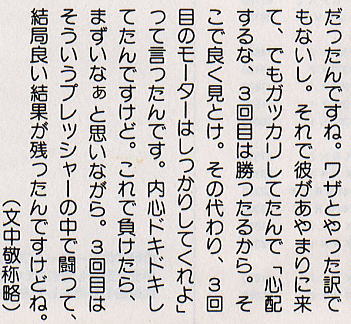 だったんですね。ワザとやった訳で
もないし。それで彼があやまりに来
て、でもガッカリしてたんで「心配
するな、3回目は勝ったるから。そ
こで良く見とけ。その代わり、3回
目のモーターはしっかりしてくれよ」
って言ったんです。内心ドキドキし
てたんですけど。これで負けたら、
まずいなぁと思いながら。3回目は
そういうプレッシャーの中で闘って、
結局良い結果が残ったんですけどね。
(文中敬称略)